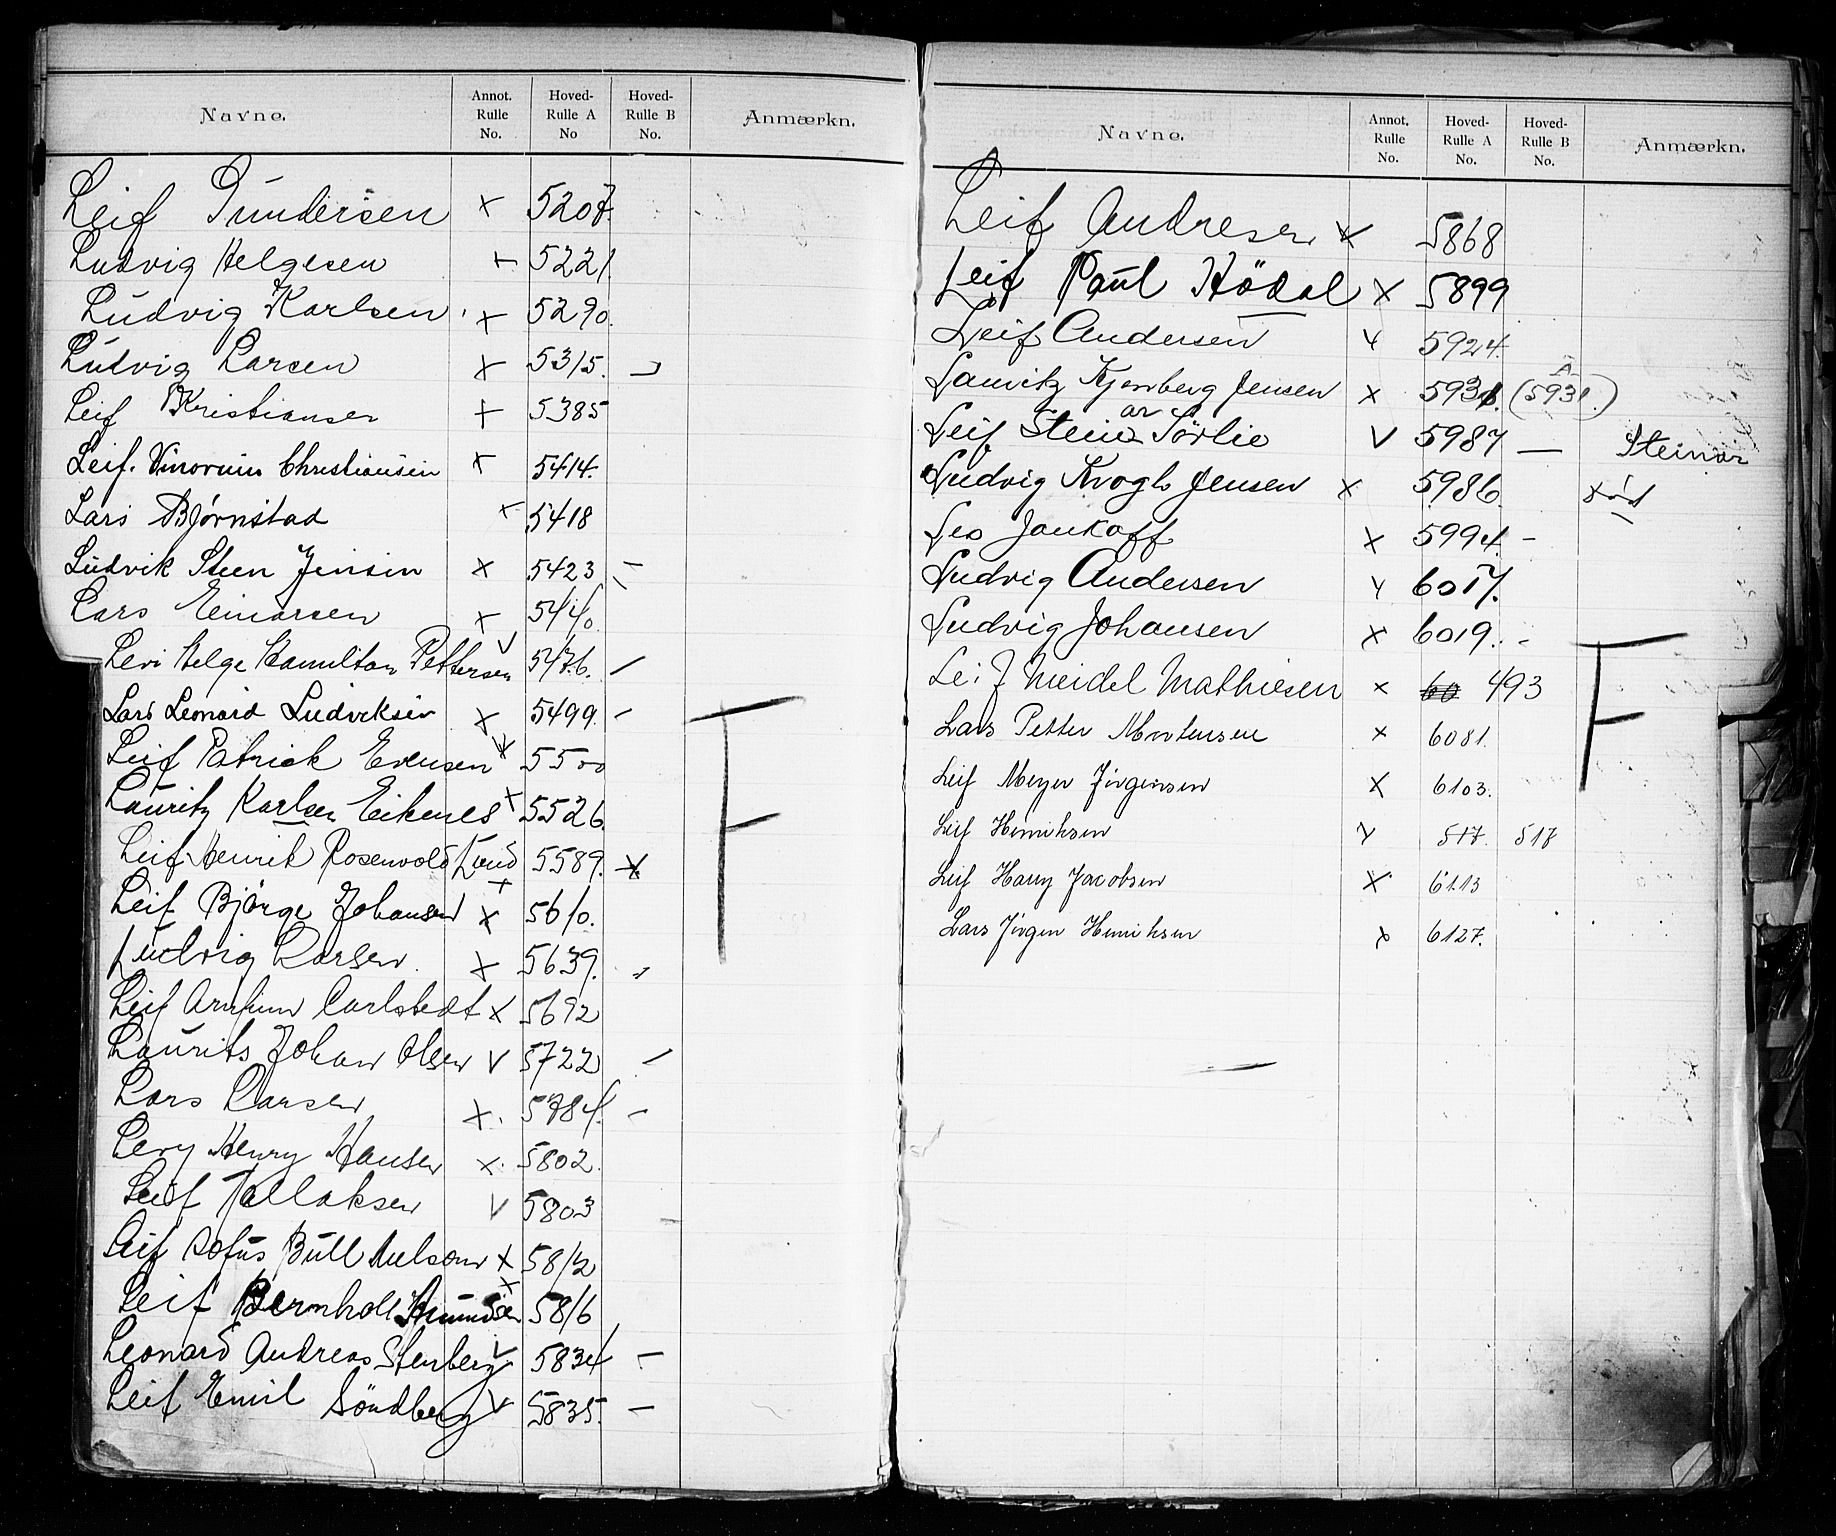 Navne. Annot. Rulle No. Hoved-Rulle A No Hoved-Rulle B No. Anmærkn.
Leif Gundersen x 5207.
Ludvig Helgesen x 5221.
Ludvig Karlsen x 5290.
Ludvig Larsen x 5315.
Leif Kristiansen x 5385
Leif. Christiansen x 5414.
Lars Bjørnstad x 5418
Ludvik Steen Jensen x 5423 –
Lars Einarsen x 5440.
Levi Helge Hamilton Pettersen v 5476. –
Lars Leonard Ludviksen x 5499. –
Leif Patrick Evensen x 5500
Lauritz Karlsen Eikenes x 5526.
Leif Henrik Rosenvold Lund x 5589. x
Leif Bjørge Johansen x 5610.
Ludvig Larsen. x 5639.
Leif Arnfinn Carlstedt x 5692
Laurits Johan Olsen v 5722 –
Lars Larsen x. 5784. –
Levy Henry Hansen x. 5802.
Leif Tallaksen v 5803
Leif Sofus Bull Nielsen x 5812
Leif Bernhold x 5816
Leonard Andreas Stenberg v 5834 –
Leif Emil Söndberg v 5835. –
F
Navne. Annot. Rulle No. Hoved-Rulle A No. Hoved-Rulle B No. Anmærkn.
Leif Andresen x 5868
Leif Paul Hödal x 5899
Leif Andersen x 5924.
Lauritz Kjenberg Jensen x 5931. (5931.) A
Leif Steinar Sörlie v 5987 — Steinar
Ludvig Krogh Jensen x 5986. død
Leo Jankoff x 5994. –
Ludvig Andersen x 6017.
Ludvig Johansen x 6019. –
Leif Meidel Mathiesen x 60 493
Lars Petter Mortensen x 6081.
Leif Meyer Jörgensen x 6103.
Leif Henriksen x 517. 517
Leif Harry Jacobsen x 6113
Lars Jörgen Henriksen x 6127.
F